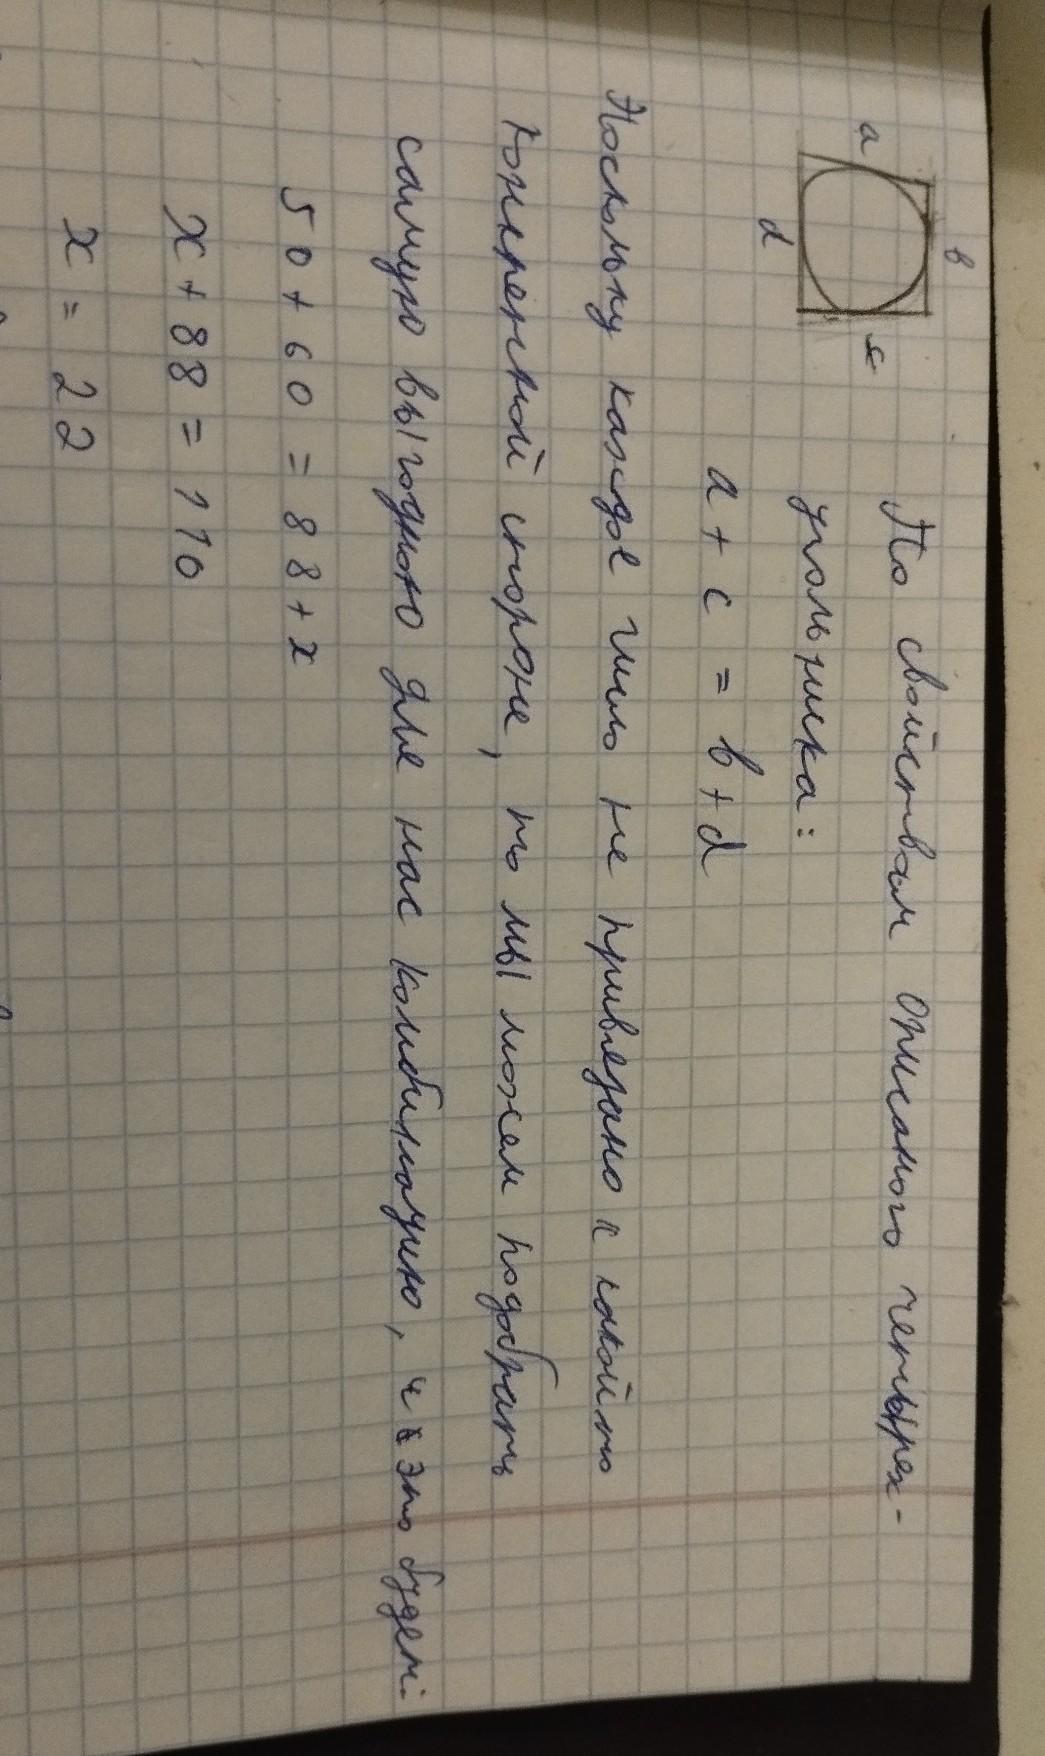 a
b
c
d
По свойствам описаного четырех-
угольника:
a + c = b + d
Поскольку каждое число не привязано к какойто
конкренной стороне, то мы можем подобрать
самую выгодную для нас комбинацию, и это будет:
50 + 60 = 88 + x
x + 88 = 110
x = 22